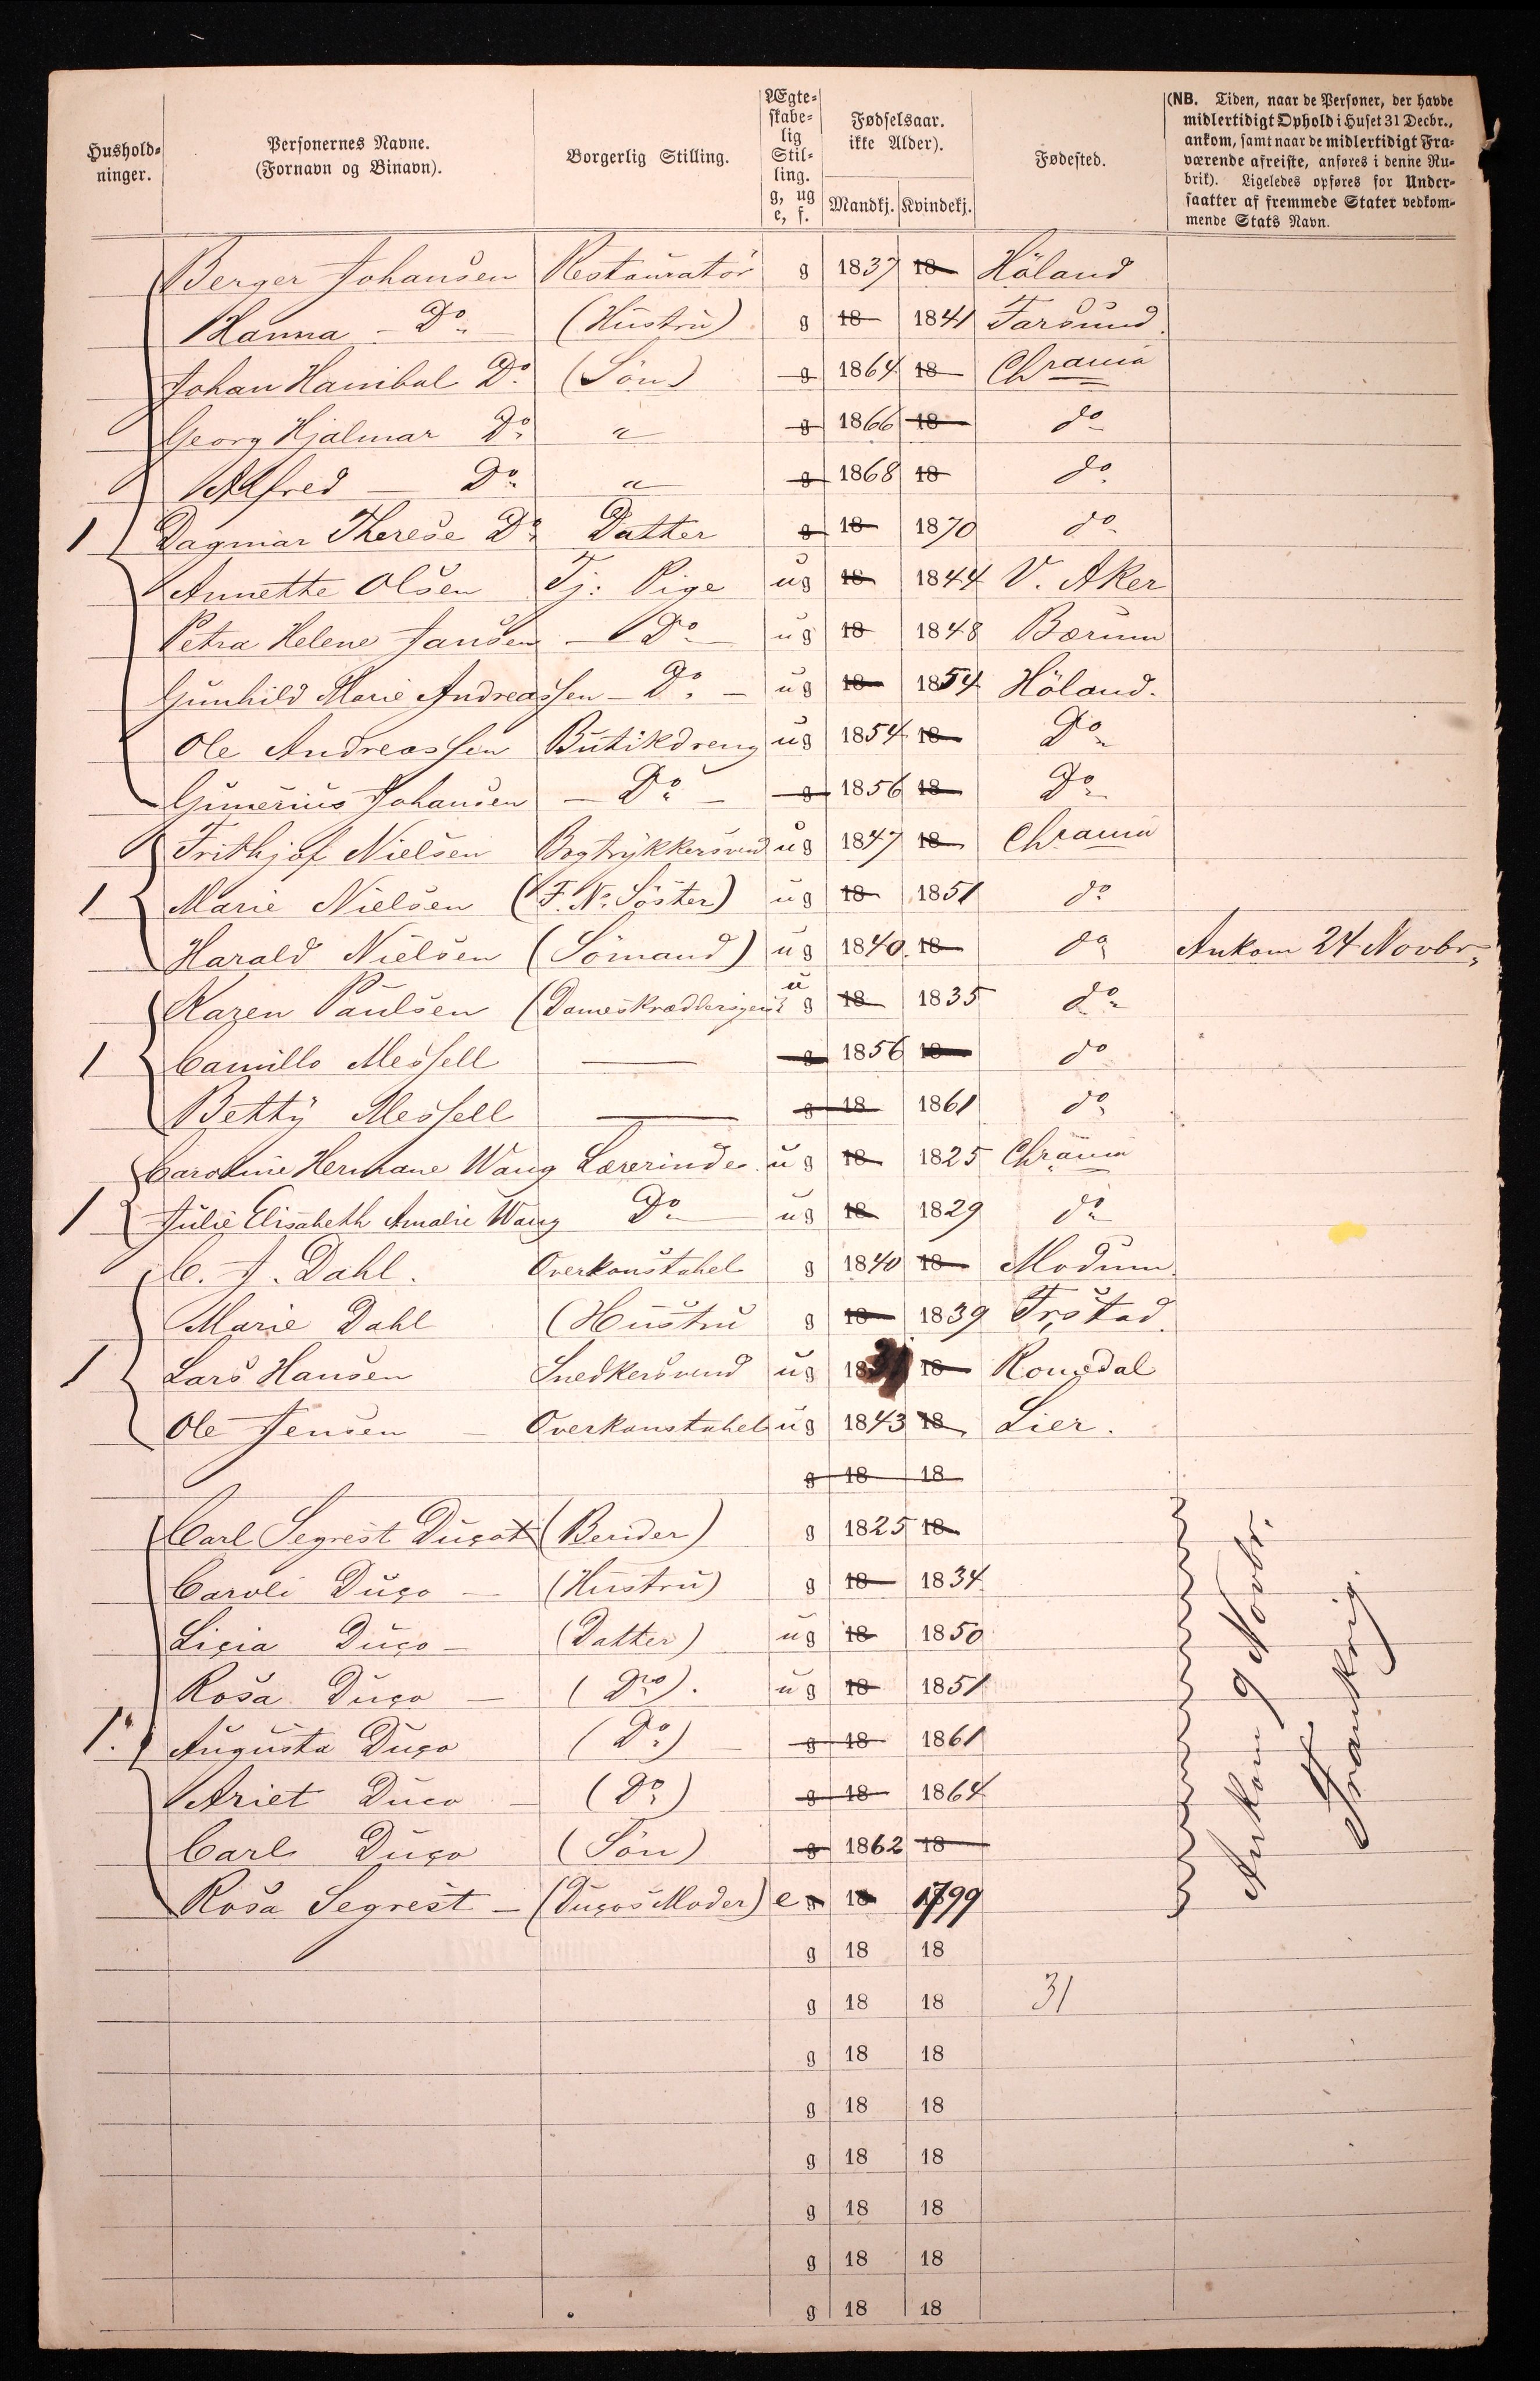 Hushold-
ninger.
Personernes Navne.
(Fornavn og Binavn).
Borgerlig Stilling.
Ægte-
skabe-
lig
Stil-
ling.
g, ug
e, f.
Fødselsaar.
ikke Alder).
Mandkj. Kvindekj.
Fødested.
(NB. Tiden, naar de Personer, der havde
midlertidigt Ophold i Huset 31 Decbr.,
ankom, samt naar de midlertidigt Fra-
værende afreiste, anføres i denne Ru-
brik). Ligeledes opføres for Under-
saatter af fremmede Stater vedkom-
mende Stats Navn.
Berger Johansen Restauratör g 1837 18 Höland
Hanna - Do (Hustru) g 18 1841 Farsund.
Johan Hanibal Do (Sön) g 1864 18 Chrania
Georg Hjalmar Do " g 1866 18 do
Alfred - Do " g 1868 18 do
1 Dagmar Therese Do Datter g 18 1870 do
Annette Olsen Tj: Pige ug 18 1844 V. Aker
Petra Helene Jansen - Do - ug 18 1848 Bærum
Gunhild Marie Andreassen - Do - ug 18 1854 Höland.
Ole Andreassen Butikdreng ug 1854 18 Do
Gunerius Johansen - Do - g 1856 18 Do
Frithjof Nielsen Bogtrykkersvend ug 1847 18 Chrania
1 Marie Nielsen (F. N. Söster) ug 18 1851 do
Harald Nielsen (Sömand) ug 1840 18 do Ankom 24 Novbr.
Karen Paulsen (Dameskræddersyerske ug 18 1835 do
1 Camillo Messell — g 1856 18 do
Betty Messell — g 18 1861 do
Caroline Hermane Wang Lærerinde. ug 18 1825 Chrania
1 Julie Elisabeth Amalie Wang Do ug 18 1829 do
C. J. Dahl. Overkonstabel g 1840 18 Modum.
Marie Dahl (Hustru g 18 1839 Trøstad.
1 Lars Hansen Snedkersvend ug 18 18 Romedal
Ole Jensen - Overkonstabel ug 1843 18 Lier.
g 18 18
Carl Segrest Duço (Berider) g 1825 18
Caroli Duço - (Hustru) g 18 1834
Liçia Duço - (Datter) ug 18 1850
Rosa Duço - (Do). ug 18 1851
1. Augusta Duço (Do) g 18 1861
Ariet Duco - (Do) g 18 1864
Carl Duço (Sön) g 1862 18
Rosa Segrest - (Duços Moder) e g 18 1799
Ankom 9 Novbr.
Frankrig.
g 18 18
g 18 18 31
g 18 18
g 18 18
g 18 18
g 18 18
g 18 18
g 18 18